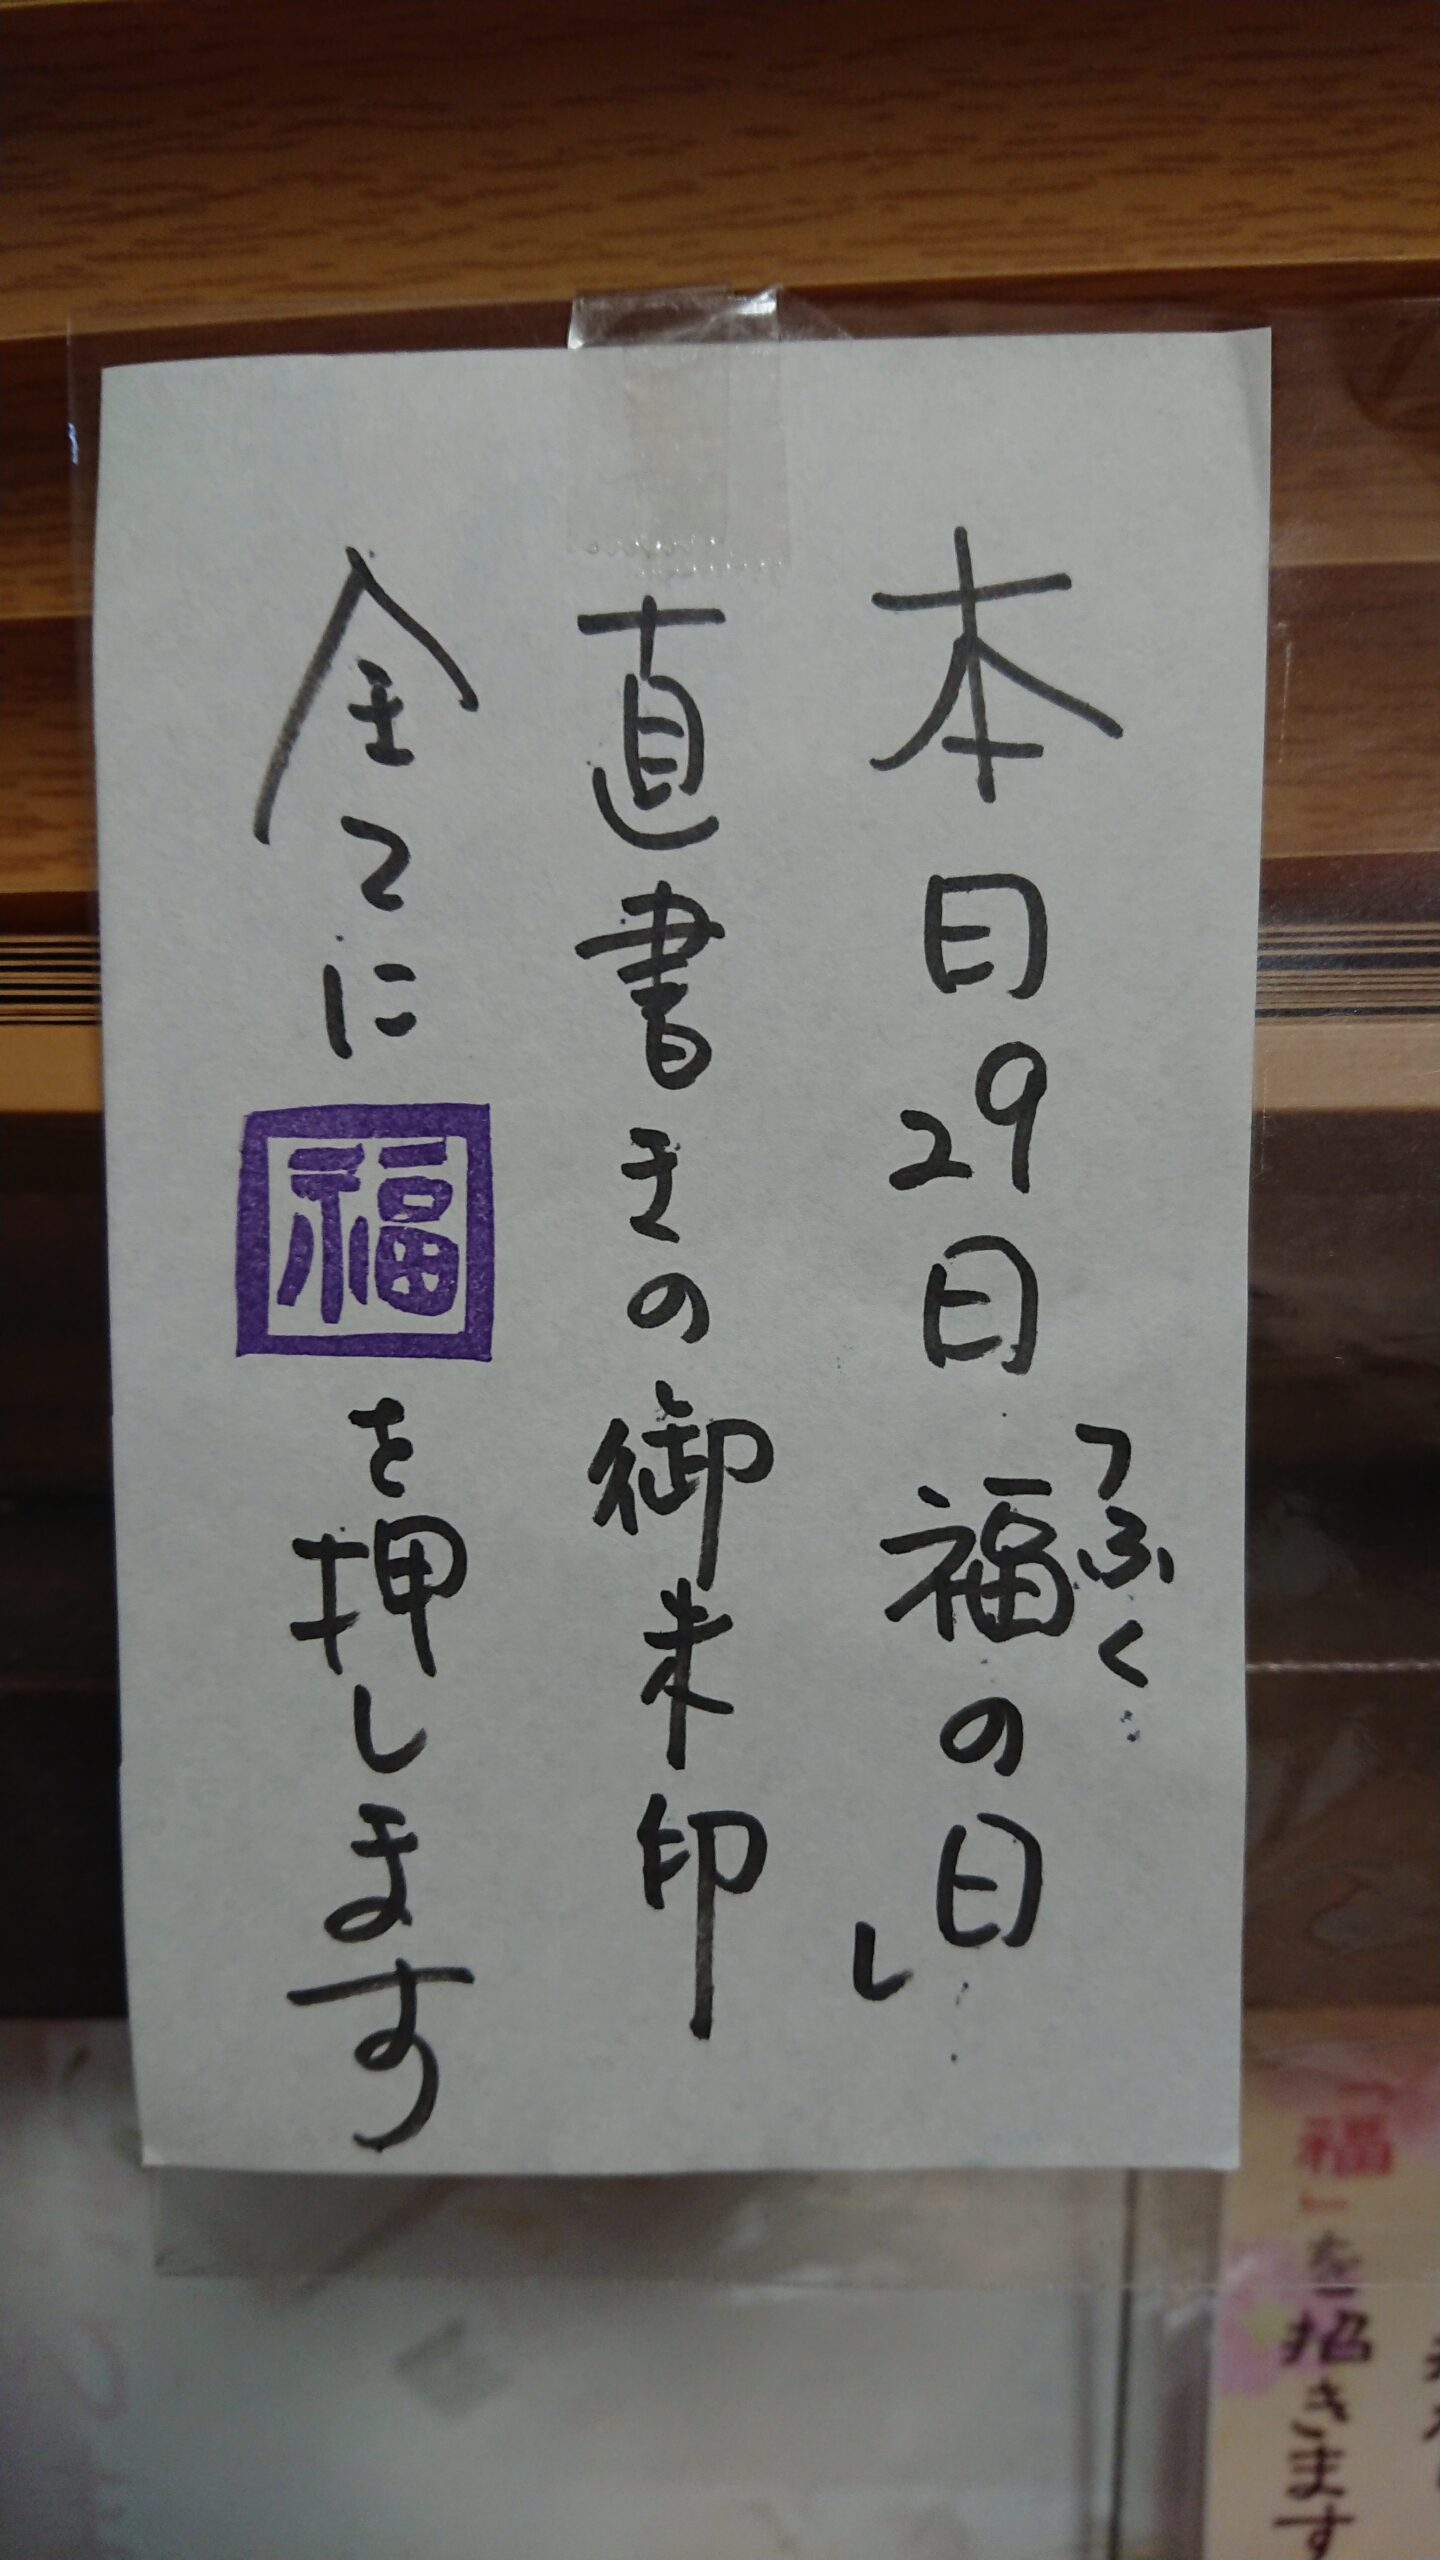 本日29日「福の日」
ふく
直書きの御朱印
全てに福を押します
「福」を招きます